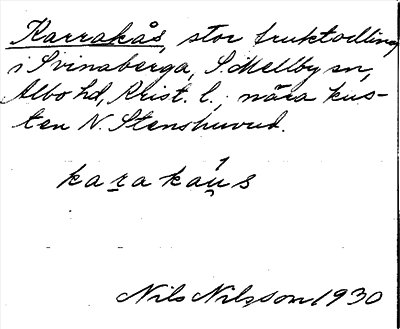 Karrakås, stor fruktodling
i Svinaberga, S. Mellby sn,
Albo hd, Krist. l., nära kus-
ten N. Stenshuvud.
karakáu̯s
Nils Nilsson 1930